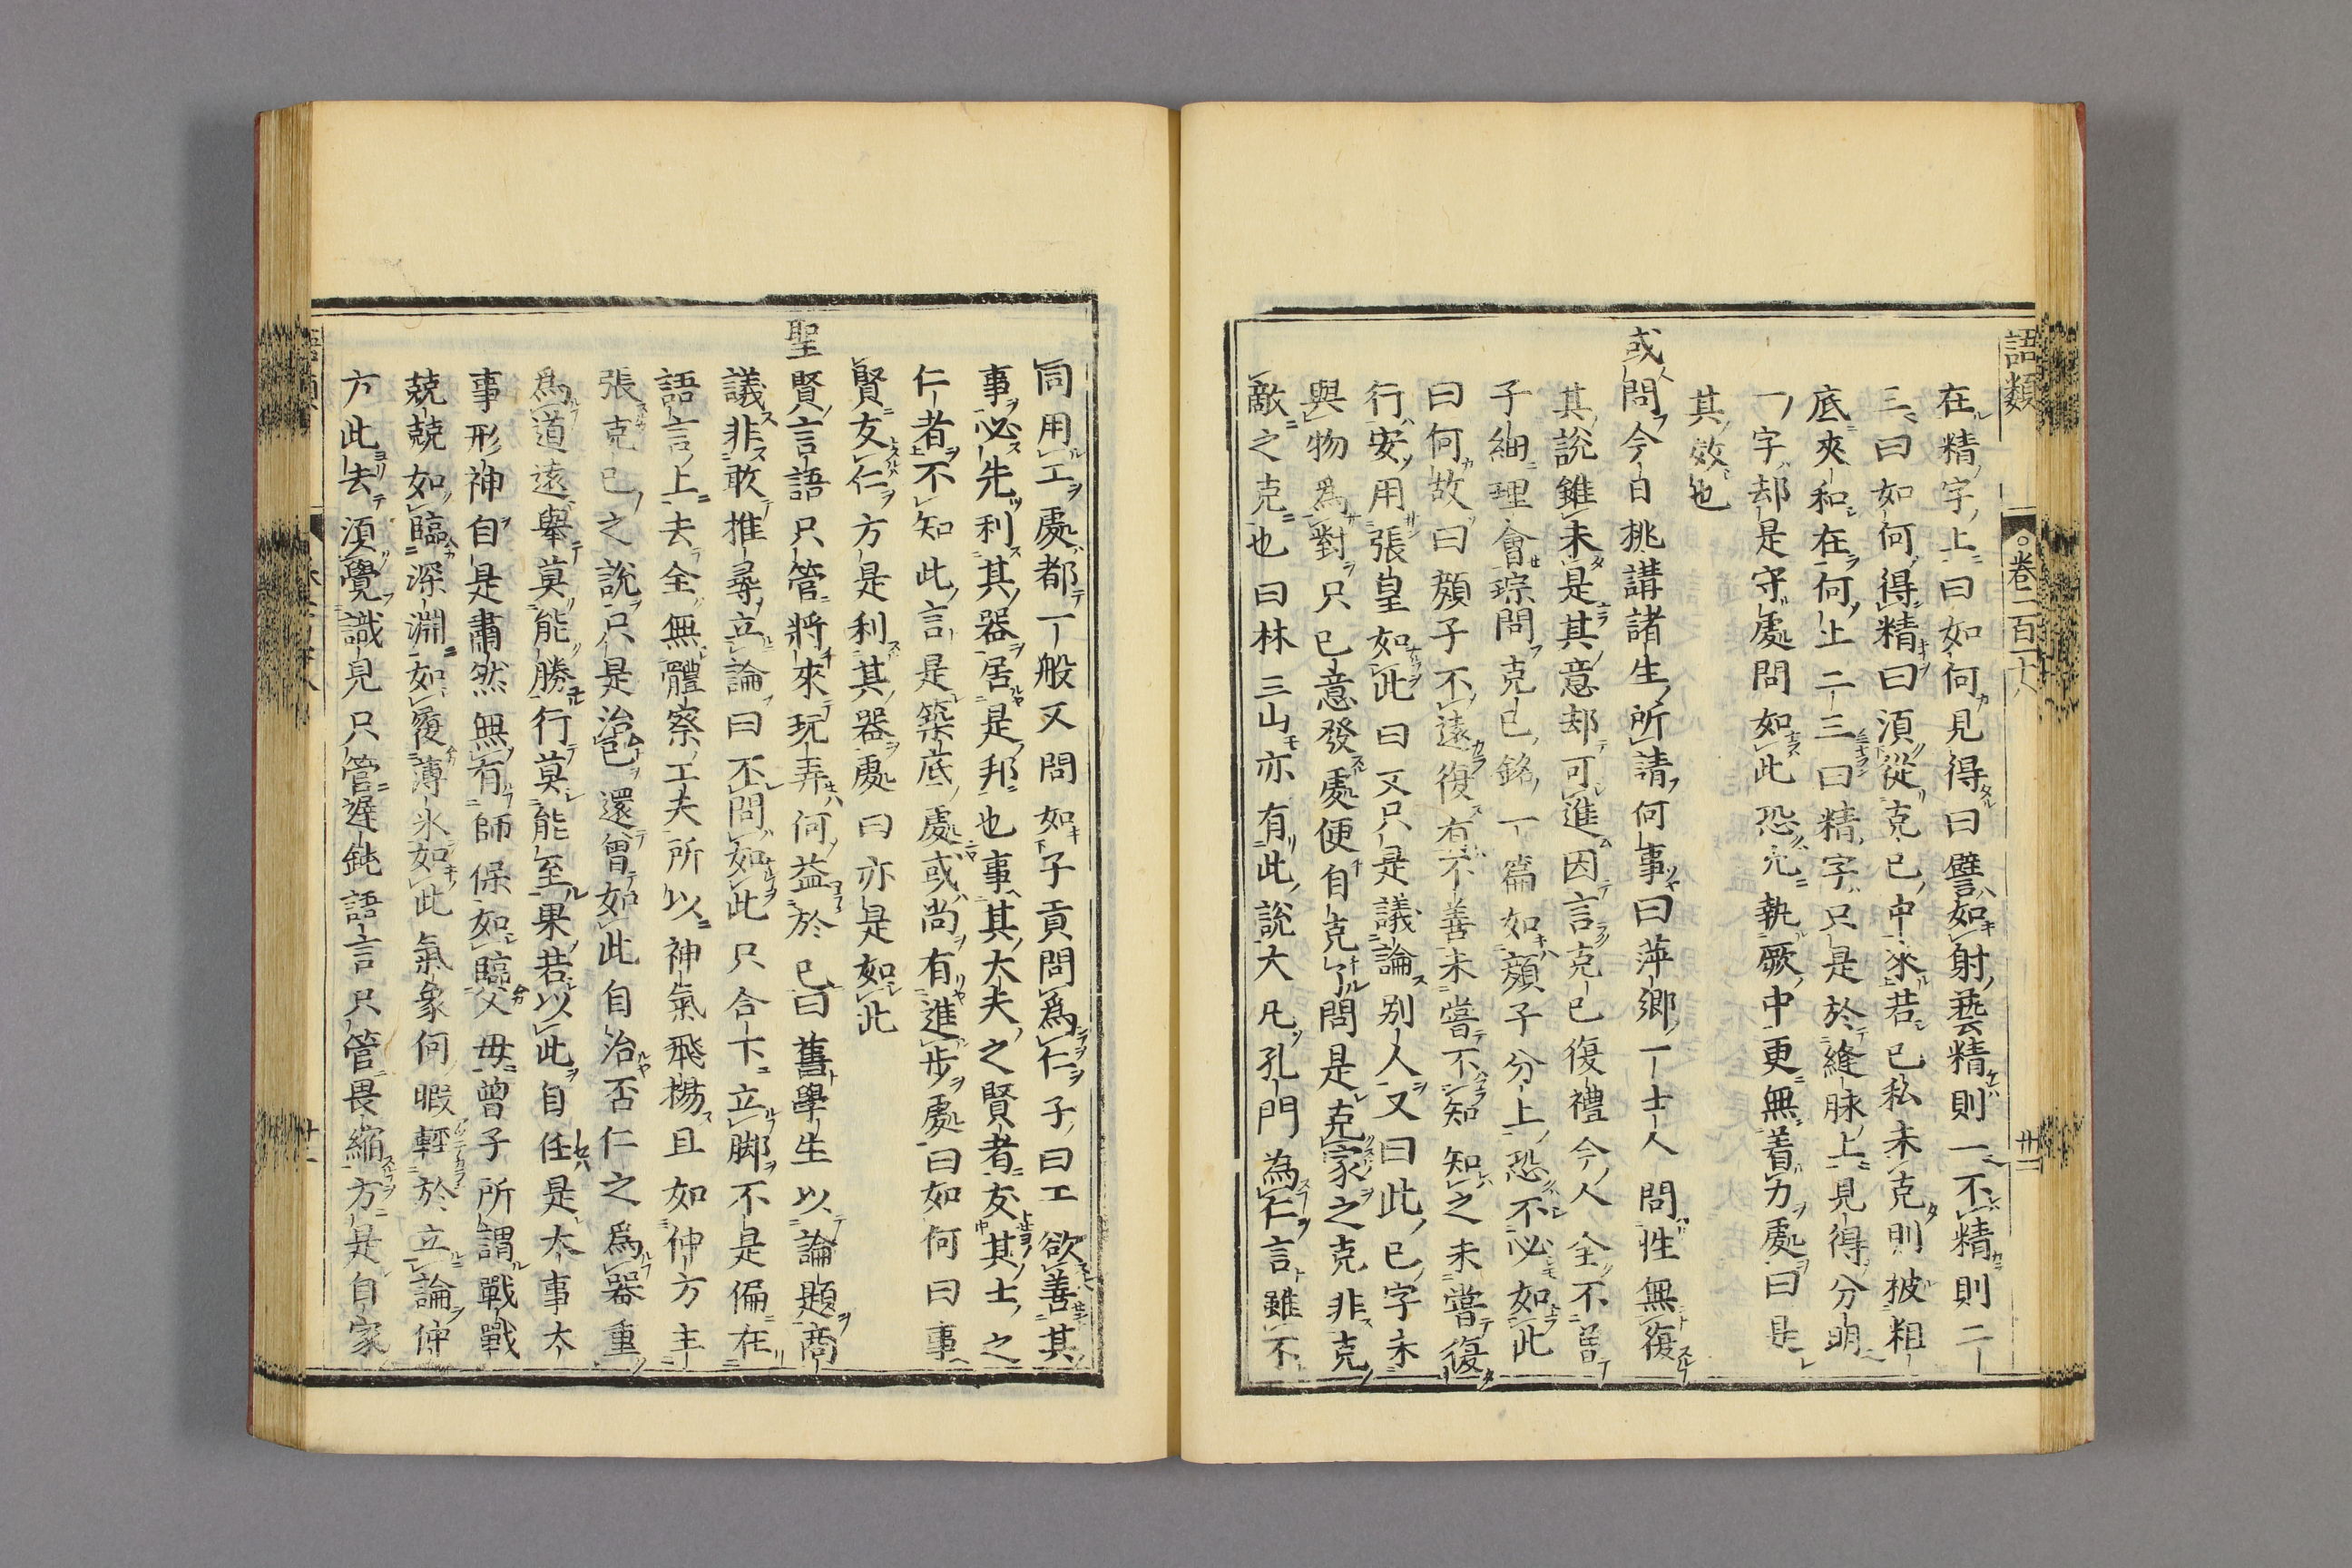 語類
卷一百十八
廿二
在精字上曰如何見得曰譬如射藝精則一不精則二
三曰如何得精曰須從克己中來若己私未克則被粗
底夾和在何止二三曰精字只是於縫脉上見得分明
一字却是守處問如此恐允執厥中更無着力處曰是
其效也
或問今日挑講諸生所請何事曰萍鄉一士人問性無復
其說雖未是其意却可進因言克己復禮今人全不曾
子細理會琮問克己銘一篇如顏子分上恐不必如此
曰何故曰顏子不遠復有不善未嘗不知知之未嘗復
行安用張皇如此曰又只是議論別人又曰此己字未
與物為對只己意發處便自克了問是克家之克非克
敵之克也曰林三山亦有此說大凡孔門為仁言雖不
同用工處都一般又問如子貢問爲仁子曰工欲善其
事必先利其器居是邦也事其大夫之賢者友其士之
仁者不知此言是築底處或尚有進步處曰如何曰事
賢友仁方是利其器處曰亦是如此
聖賢言語只管將來玩弄何益於己曰舊學生以論題商
議非敢推尋立論曰不問如此只合下立脚不是偏在
語言上去全無體察工夫所以神氣飛揚且如仲方主
張克己之說只是治己還曾如此自治否仁之爲器重
爲道遠舉莫能勝行莫能至果若以此自任是大事大
事形神自是肅然無有師保如臨父母曾子所謂戰戰
兢兢如臨深淵如履薄氷如此氣象何暇輕於立論仲
方此去須覺識見只管遲鈍語言只管畏縮方是自家